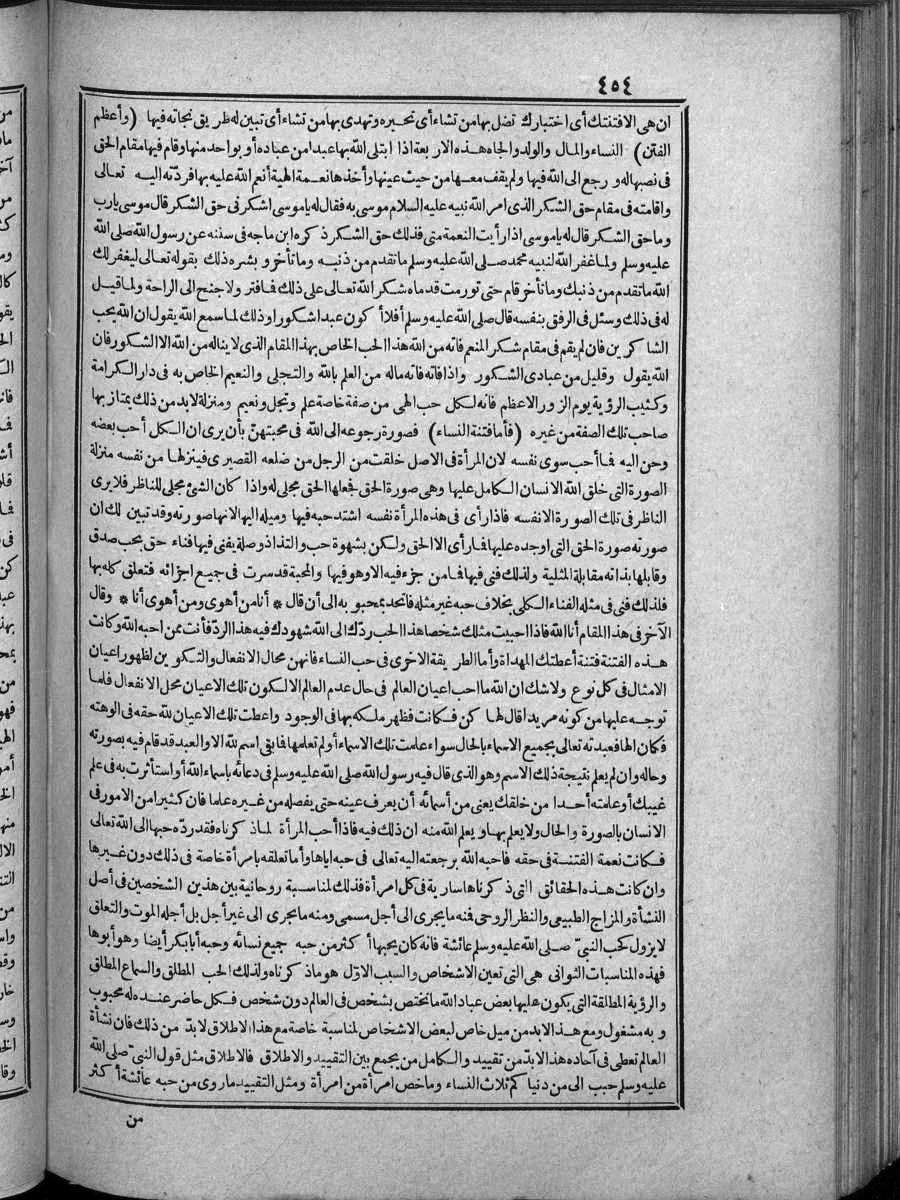 ٤٥٤
ان هى الا فتنتك أى اختبارك تضل بها من تشاء أى تحيره وتهدى بها من تشاء أى تبين له طريق نجاته فيها (وأعظم
الفتن) النساء والمال والولد والجاه هذه الاربعة اذا ابتلى الله بها عبدا من عباده أو بواحد منها وقام فيها مقام الحق
فى نصبها له ورجع الى الله فيها ولم يقف معها من حيث عينها وأخذها نعمة الهية أنعم الله عليه بها فردّته اليه تعالى
واقامته فى مقام حق الشكر الذى امر الله نبيه عليه السلام موسى به فقال له ياموسى اشكرنى حق الشكر قال موسى يارب
وما حق الشكر قال له ياموسى اذا رأيت النعمة منى فذلك حق الشكر ذكره ابن ماجه فى سننه عن رسول الله صلى الله
عليه وسلم ولما غفر الله لنبيه محمد صلى الله عليه وسلم ما تقدم من ذنبه وما تأخر وبشره ذلك بقوله تعالى ليغفر لك
الله ما تقدم من ذنبك وما تأخر قام حتى تورمت قدماه شكر الله تعالى على ذلك فما فتر ولا جنح الى الراحة ولما قيل
له فى ذلك وسئل فى الرفق بنفسه قال صلى الله عليه وسلم أفلا أكون عبدا شكورا وذلك لما سمع الله يقول ان الله يحب
الشاكرين فان لم يقم فى مقام شكر المنعم فاته من الله هذا الحب الخاص بهذا المقام الذى لا يناله من الله الا الشكور فان
الله يقول وقليل من عبادى الشكور واذا فاته فاته ماله من العلم بالله والتجلى والنعيم الخاص به فى دار الكرامة
وكثيب الرؤية يوم الزور الاعظم فانه لكل حب الهى من صفة خاصة علم وتجل ونعيم ومنزلة لابد من ذلك يمتاز بها
صاحب تلك الصفة من غيره (فأما فتنة النساء) فصورة رجوعه الى الله فى محبتهنّ بأن يرى ان الكل أحب بعضه
وحن اليه فما أحب سوى نفسه لان المرأة فى الاصل خلقت من الرجل من ضلعه القصيرى فينزلها من نفسه منزلة
الصورة التى خلق الله الانسان الكامل عليها وهى صورة الحق فجعلها الحق مجلى له واذا كان الشئ مجلى للناظر فلا يرى
الناظر فى تلك الصورة الا نفسه فاذا رأى فى هذه المرأة نفسه اشتد حبه فيها وميله اليها لانها صورته وقد تبين لك ان
صورته صورة الحق التى اوجده عليها فما رأى الا الحق ولكن بشهوة حب والتذاذ وصلة يفنى فيها فناء حق بحب صدق
وقابلها بذاته مقابلة المثلية ولذلك فنى فيها فما من جزء فيه الا وهو فيها والمحبة قد سرت فى جميع اجزائه فتعلق كله بها
فلذلك فنى فى مثله الفناء الكلى بخلاف حبه غير مثله فاتحد بمحبوبه الى أن قال * أنا من أهوى ومن أهوى أنا * وقال
الآخر فى هذا المقام أنا الله فاذا احببت مثلك شخصا هذا الحب ردّك الى الله شهودك فيه هذا الردّ فأنت ممن احبه الله وكانت
هذه الفتنة فتنة أعطتك المهداة وأما الطريقة الاخرى فى حب النساء فانهن محال الانفعال والتكوين لظهور اعيان
الامثال فى كل نوع ولا شك ان الله ما احب اعيان العالم فى حال عدم العالم الا لكون تلك الاعيان محل الانفعال فلما
توجه عليها من كونه مريدا قال لها كن فكانت فظهر ملكه بها فى الوجود واعطت تلك الاعيان لله حقه فى الوهته
فكان الها فعبدته تعالى بجميع الاسماء بالحال سواء علمت تلك الاسماء أو لم تعلمها فما بقى اسم لله الا والعبد قد قام فيه بصورته
وحاله وان لم يعلم نتيجة ذلك الاسم وهو الذى قال فيه رسول الله صلى الله عليه وسلم فى دعائه باسماء الله أو استأثرت به فى علم
غيبك أو علمته أحدا من خلقك يعنى من أسمائه أن يعرف عينه حتى يفصله من غيره علما فان كثيرا من الامور فى
الانسان بالصورة والحال ولا يعلم بها ويعلم الله منه ان ذلك فيه فاذا أحب المرأة لما ذكرناه فقد ردّه حبها الى الله تعالى
فكانت نعمة الفتنة فى حقه فاحبه الله برجعته اليه تعالى فى حبه اياها وأما تعلقه بامرأة خاصة فى ذلك دون غيرها
وان كانت هذه الحقائق التى ذكرناها سارية فى كل امرأة فذلك لمناسبة روحانية بين هذين الشخصين فى أصل
النشأة والمزاج الطبيعى والنظر الروحى فمنه ما يجرى الى أجل مسمى ومنه ما يجرى الى غير أجل بل أجله الموت والتعلق
لا يزول كحب النبىّ صلى الله عليه وسلم عائشة فانه كان يحبها أكثر من حبه جميع نسائه وحبه أبا بكر أيضا وهو أبوها
فهذه المناسبات الثوانى هى التى تعين الاشخاص والسبب الاوّل هو ما ذكرناه ولذلك الحب المطلق والسماع المطلق
والرؤية المطلقة التى يكون عليها بعض عباد الله ما تختص بشخص فى العالم دون شخص فكل حاضر عنده له محبوب
وبه مشغول ومع هذا لابد من ميل خاص لبعض الاشخاص لمناسبة خاصة مع هذا الاطلاق لابدّ من ذلك فان نشأة
العالم تعطى فى آحاده هذا لابدّ من تقييد والكامل من يجمع بين التقييد والاطلاق فالاطلاق مثل قول النبىّ صلى الله
عليه وسلم حبب الى من دنياكم ثلاث النساء وما خص امرأة من امرأة ومثل التقييد ما روى من حبه عائشة أكثر
من